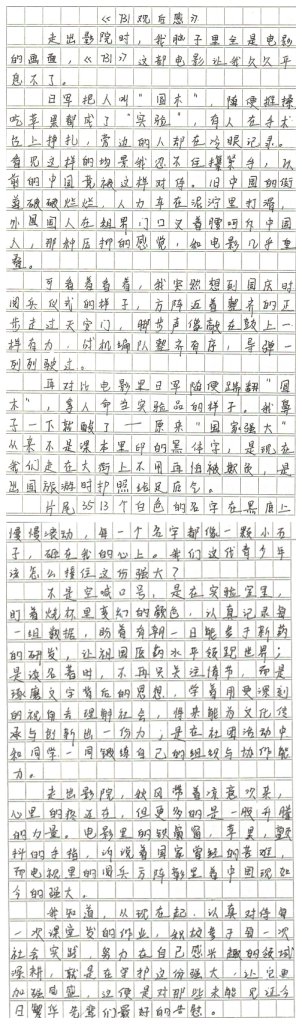 《731观后感》
走出影院时，我脑子里全是电影
的画面，《731》这部电影让我久久平
息不了。
日军把人叫"圆木"，随便推搡
吃苹果都成了"实验"，有人在手术
台上挣扎，旁边的人却在冷眼记录。
看见这样的场景我忍不住攥紧手，以
前的中国竟被这样对待。旧中国的街
道破破烂烂，人力车在泥泞里打滑，
外国人在租界门口叉着腰呵斥中国
人，那种压抑的感觉，和电影几乎重
叠。
可看着看着，我突然想到国庆时
阅兵仪式的样子，方阵迈着整齐的正
步走过天安门，脚步声像敲在鼓上一
样有力，战机编队整齐有序，导弹一
列列驶过。
再对比电影里日军随便踹翻"圆
木"，拿人命当实验品的样子。我鼻
子一下就酸了——原来"国家强大"
从来不是课本里印的黑体字，是现在
我们走在大街上不用再怕被欺负，是
出国旅游时护照给足底气。
片尾3513个白色的名字在黑底上
慢慢滚动，每一个名字都像一颗小石
子，砸在我的心上。我们这代青少年
该怎么接住这份强大？
不是空喊口号，是在实验室里，
盯着烧杯里变幻的颜色，认真记录每
一组数据，盼着有朝一日能参于新药
的研发，让祖国医药水平领跑世界；
是读名著时，不再只关注情节，而是
琢磨文字背后的思想，学着用更深刻
的视角去理解社会，将来能为文化传
承与创新出一份力；是在社团活动中
和同学一同锻炼自己的组织与协作能
力。
走出影院，秋风带着凉意吹来，
心里的疼还在，但更多的是一股升腾
的力量。电影里的铁窗窗，苹果，颤
抖的手指，诉说着国家曾经的苦难，
而电视里的阅兵方阵彰显着中国现如
今的强大。
我知道，从现在起，认真对待每
一次课堂发的作业，积极参于每一次
社会实践，努力在自己感兴趣的领域
深耕，就是在守护这份强大，让它更
加强自盛，这便是对那些未能见过今
日繁华先辈们最好的告慰。